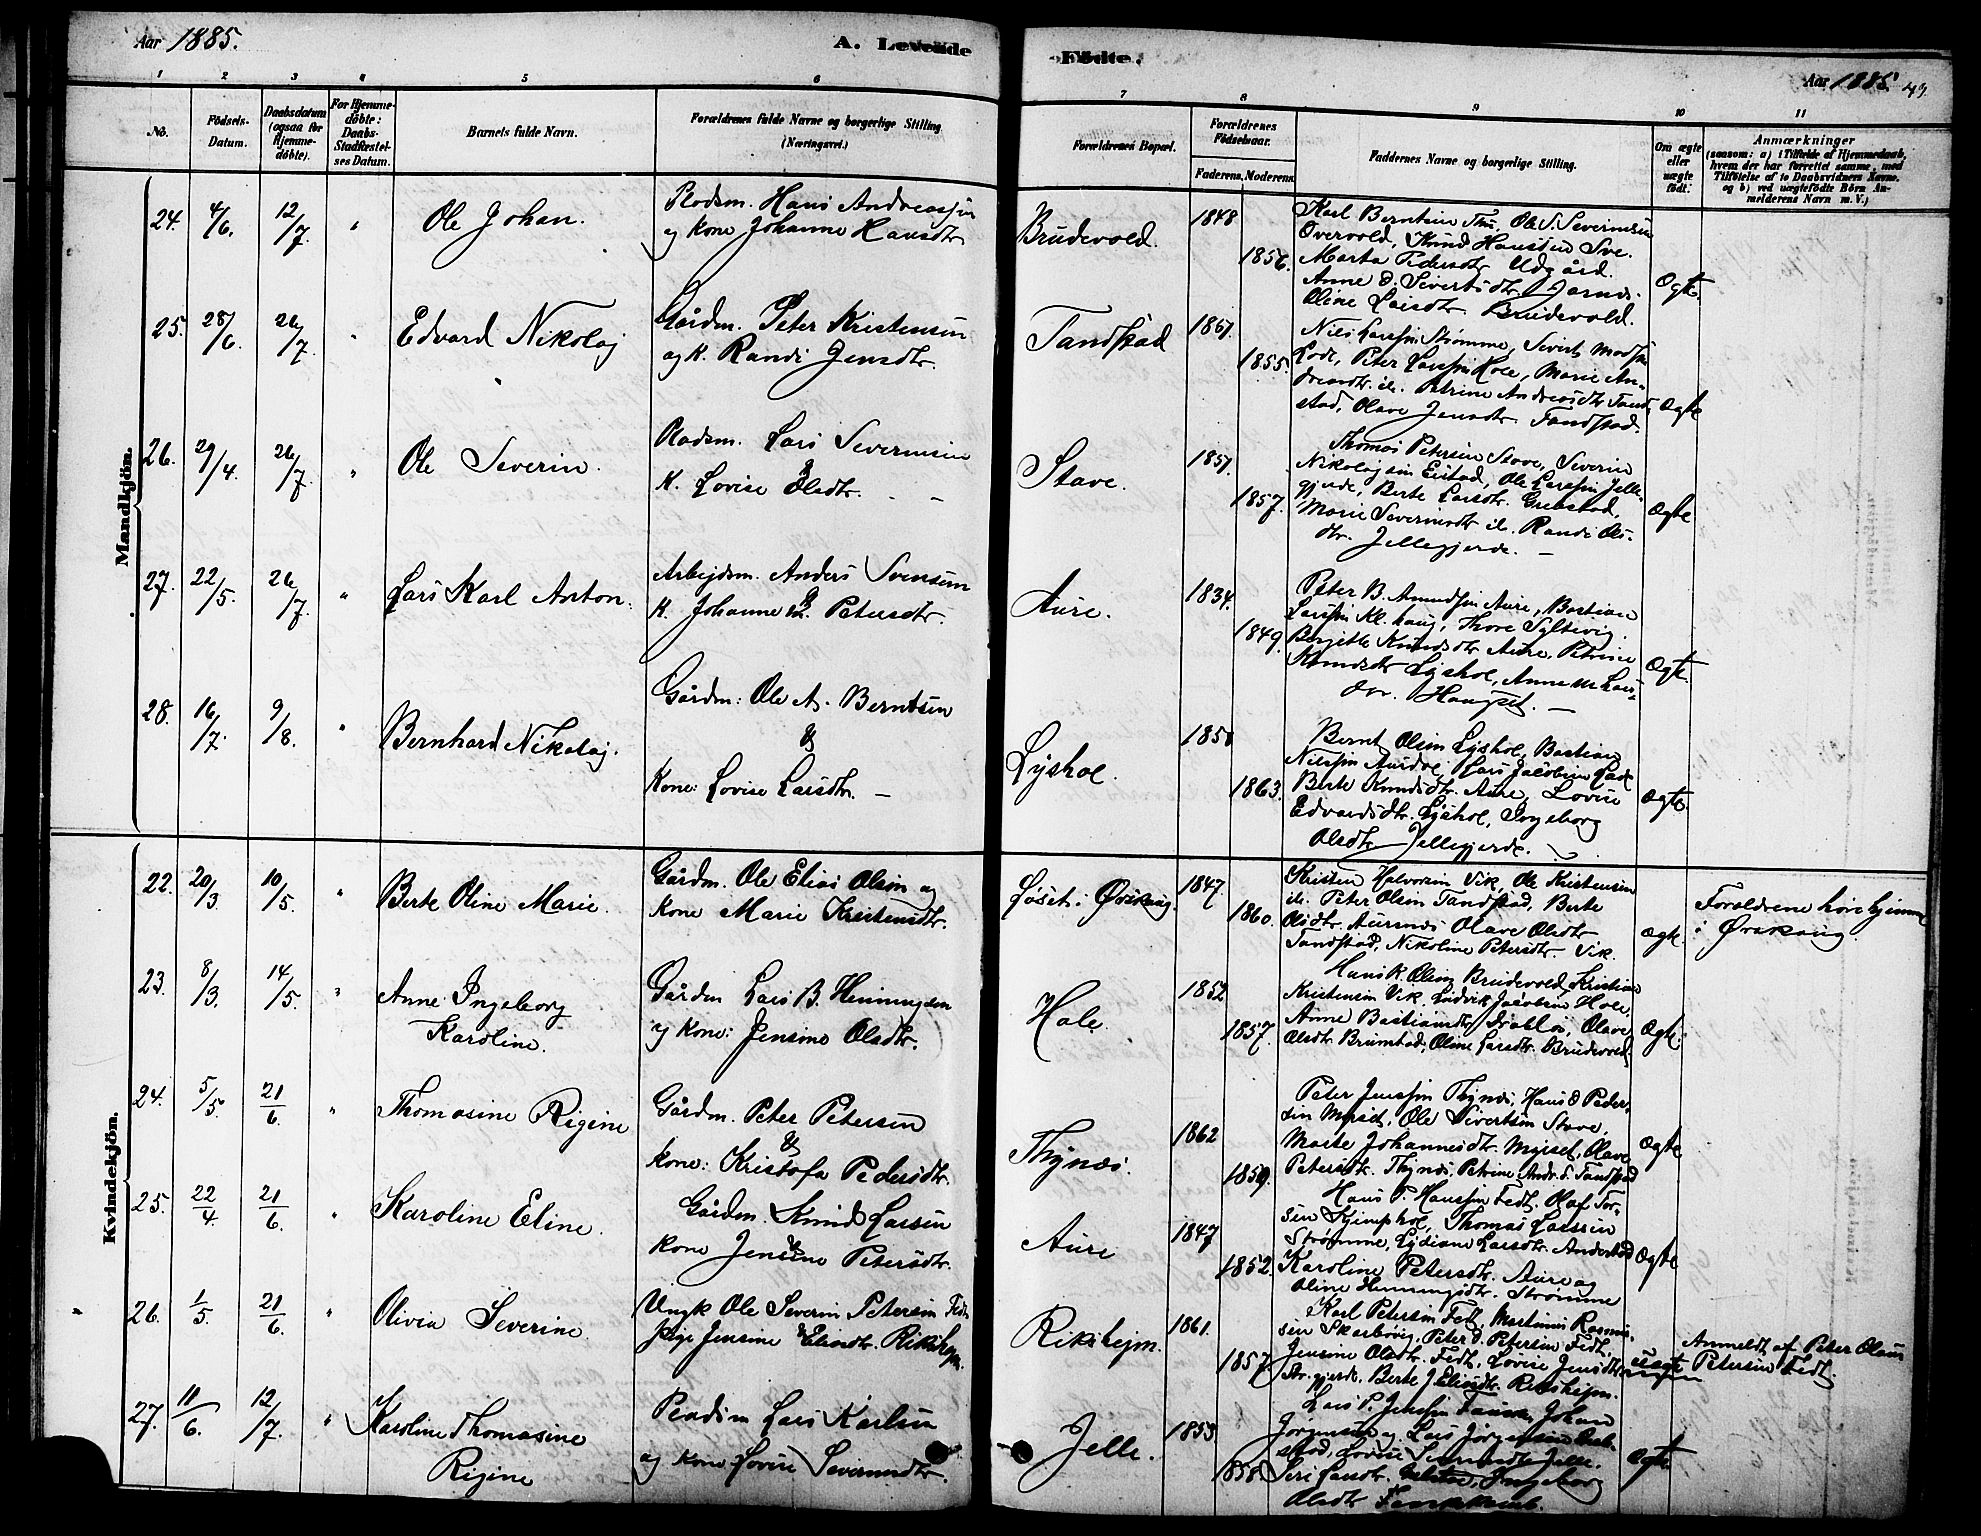 Aar 1885.
A. Levende
Fødte.
Aar 1885. 43.
1 2 3 4 5 6 7 8 9 10 11
No.
Fødsels-Datum.
Daabsdatum (ogsaa for Hjemme-døbte).
For Hjemme-døbte: Daabs-Stadfæstel-ses Datum.
Barnets fulde Navn.
Forældrenes fulde Navne og borgerlige Stilling. (Næringsvei.)
Forældrenes Bopæl.
Forældrenes Fødselsaar.
Faderens. Moderens.
Faddernes Navne og borgerlige Stilling.
Om ægte eller uægte født.
Anmærkninger
(saasom: a) i Tilfælde af Hjemmedaab, hvem der har forrettet samme, med Tilføielse af to Daabsvidners Navne. og b) ved uægtefødte Børn Anmelderens Navn m. V.)
Mandkjön.
24. 4/6. 12/7. " Ole Johan.
Pladsm. Hans Andreassen
og Kone Johanne Hansdtr
Brudevold. 1848 1856.
Karl Berntsen Thu, Ole S. Severinsen
Overvold, Knud Hanssen Sve.
Marta Pedersdtr Udgård.
Anne O. Sivertsdtr
Oline Larsdtr Brudevold.
Ægte.
25. 28/6 26/7. " Edvard Nikolaj
Gårdm. Peter Kristensen
og K. Randi Jensdtr.
Tandstad 1861. 1855.
Nils Larssen Strømme, Sivert Madssen
Lade, Peter Larssen Hole, Marie An-
dreasdtr. ib. Petrine Andreasdtr Tand-
stad, Olave Jensdtr Tandstad.
Ægte
26. 29/4. 26/7. " Ole Severin.
Pladsm. Lars Severinsen
& K. Lovise Olsdtr.
Stave. 1857. 1857.
Thomas Petersen Stave, Severin
Nikolajsen Eistad, Ole Larssen Jelle-
gjerde, Berte Larsdtr. Grebstad,
Marie Severinsdtr ib. Randi Ols-
dtr. Jellegjerde.
Ægte
27. 22/5. 26/7. " Lars Karl Anton.
Arbejdsm. Anders Svensen
& K. Johanne M. Petersdtr.
Aure. 1834. 1849.
Peter B. Amundsen Aure, Bastian
Larssen Kl.haug, Thore Syltevig.
Bergitte Knudsdtr Aure, Petrine
Knudsdtr Lyshol, Anne M. Lars-
dtr. Haugset.
Ægte.
28. 16/7. 9/8. " Bernhard Nikolaj.
Gårdm: Ole A. Berntsen
&
Kone: Lovise Larsdtr.
Lyshol. 1858 1863.
Bernt Olsen Lyshol, Bastian
Nilssen Aurdal, Lars Jakobsen Lade
Berte Knudsdtr. Aure, Lovise
Edvardsdtr. Lyshol, Ingeborg
Olsdtr Jellegjerde.
Ægte.
Kvindekjön.
22. 20/3 10/5. " Berte Oline Marie.
Gårdm. Ole Elias Olsen og
Kone Marie Kristensdtr.
Løset i Ørskoug. 1847. 1860.
Kristen Halvorsen Vik, Ole Kristensen
ib. Peter Olsen Tandstad, Berte
Olsdtr. Aursnes Olave Olsdtr
Tandstad, Nikoline Petersdtr. Vik.
Ægte.
Forældrene høre hjemme
i Ørskoug.
23. 8/3. 14/5. " Anne Ingeborg
Karoline.
Gårdm Lars B. Henningsen
og Kone: Jensine Olsdtr.
Hole. 1852 1857.
Hans K. Olsen Brudevold, Kristian
Kristensen Vik. Ludvik Jakobsen Hole,
Anne Bastiansdtr Drabløs, Olave
Olsdtr Brunstad, Oline Larsdtr. Brudevold.
Ægte.
24. 5/5. 21/6. " Thomasine Rigine
Gårdm. Peter Petersen
&
Kone: Kristofa Pedersdtr.
Thynes. 1862 1859.
Peter Jenssen Thynes, Hans O Peder-
sen Myrset, Ole Sivertsen Stave,
Marte Johannesdtr. Myrset, Olave
Petersdtr. Thynes, Petrine Andr.d. Tandstad
Ægte
25. 22/4 21/6. " Karoline Eline.
Gårdm. Knud Larsen
& Kone Jensine Petersdtr.
Aure 1847 1852.
Hans P. Hanssen Fedt. Olaf Tor-
sen Kjemphol, Thomas Larssen
Strømme, Lydiane Larsdtr. Anderstad
Karoline Petersdtr. Aure og
Oline Henningsdtr. Strømme
Ægte
26. 1/5. 21/6. " Olivia Severine.
Ungk Ole Severin Petersen Fedt
& Pige Jensine Eliasdtr. Rikshejm.
Rikshejm. 1861. 1857.
Karl Petersen Fedt, Martinus Rasmus-
sen Skarbøvig, Peter O. Petersen Fedt,
Jensine Olsdtr. Fedt, Lovise Jensdtr
Str.gjerde, Berte J Eliasdtr. Rikshejm.
uægte
Anmeldt af Peter Olaus
Petersen Fedt.
27. 11/6. 12/7. " Karoline Thomasine
Rigine
Pladsm Lars Karlsen
og Kone Lovise Severinsdtr.
Jelle. 1853 1858.
Lars P. Jenssen Johan
Jørgensen og Lars Jørgensen
Lovise Severinsdtr Jelle.
Siri Larsdtr. Ingeborg
Olsdtr
Ægte